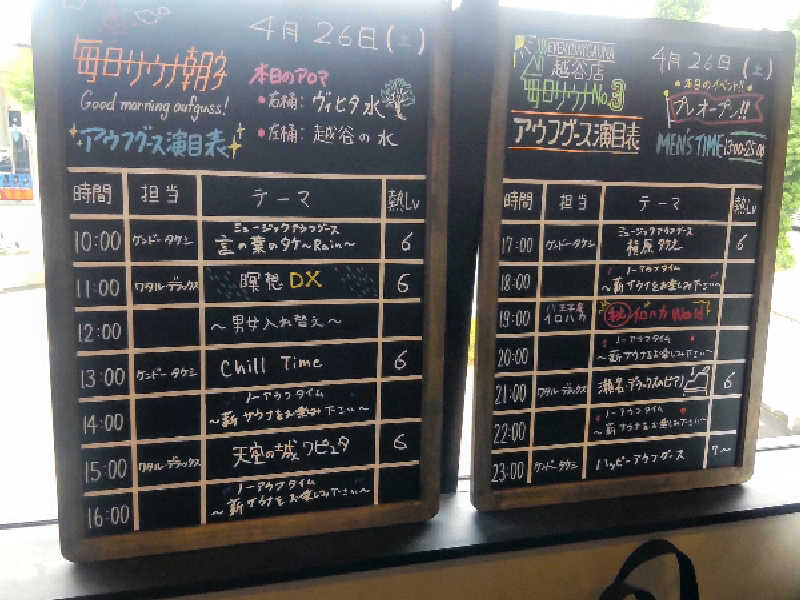 4月26日(土)
毎日サウナ朝子
Good morning aufguss!
アウフグース演目表
本日のアロマ
・右桶: ヴィヒタ水
・左桶: 越谷の水
時間 担当 テーマ 熱Lv
10:00 ケンドー・タケシ ミュージックアウフグース
言の葉のタケ～Rain～ 6
11:00 ワタル・デラックス 瞑想DX 6
12:00 ～男女入れ替え～
13:00 ケンドー・タケシ Chill Time 6
14:00 ノーアウフタイム
～薪サウナをお楽しみ下さい～
15:00 ワタル・デラックス 天空の城ワピュタ 6
16:00 ノーアウフタイム
～薪サウナをお楽しみ下さい～
EVERYDAY SAUNA
越谷店
毎日サウナNo.3
アウフグース演目表
4月26日(土)
本日のイベント!!
プレオープン!!
MEN'S TIME
時間 担当 テーマ 熱Lv
17:00 ケンドー・タケシ ミュージックアウフグース
6
18:00 ノーアウフタイム
～薪サウナをお楽しみ下さい～
19:00 八王子店
イロハカ 祝 イロハカ World
20:00 ノーアウフタイム
～薪サウナをお楽しみ下さい～
21:00 ワタル・デラックス 瀬名・デラックスのピアノ 6
22:00 ノーアウフタイム
～薪サウナをお楽しみ下さい～
23:00 ケンドー・タケシ ハッピーアウフグース 7～